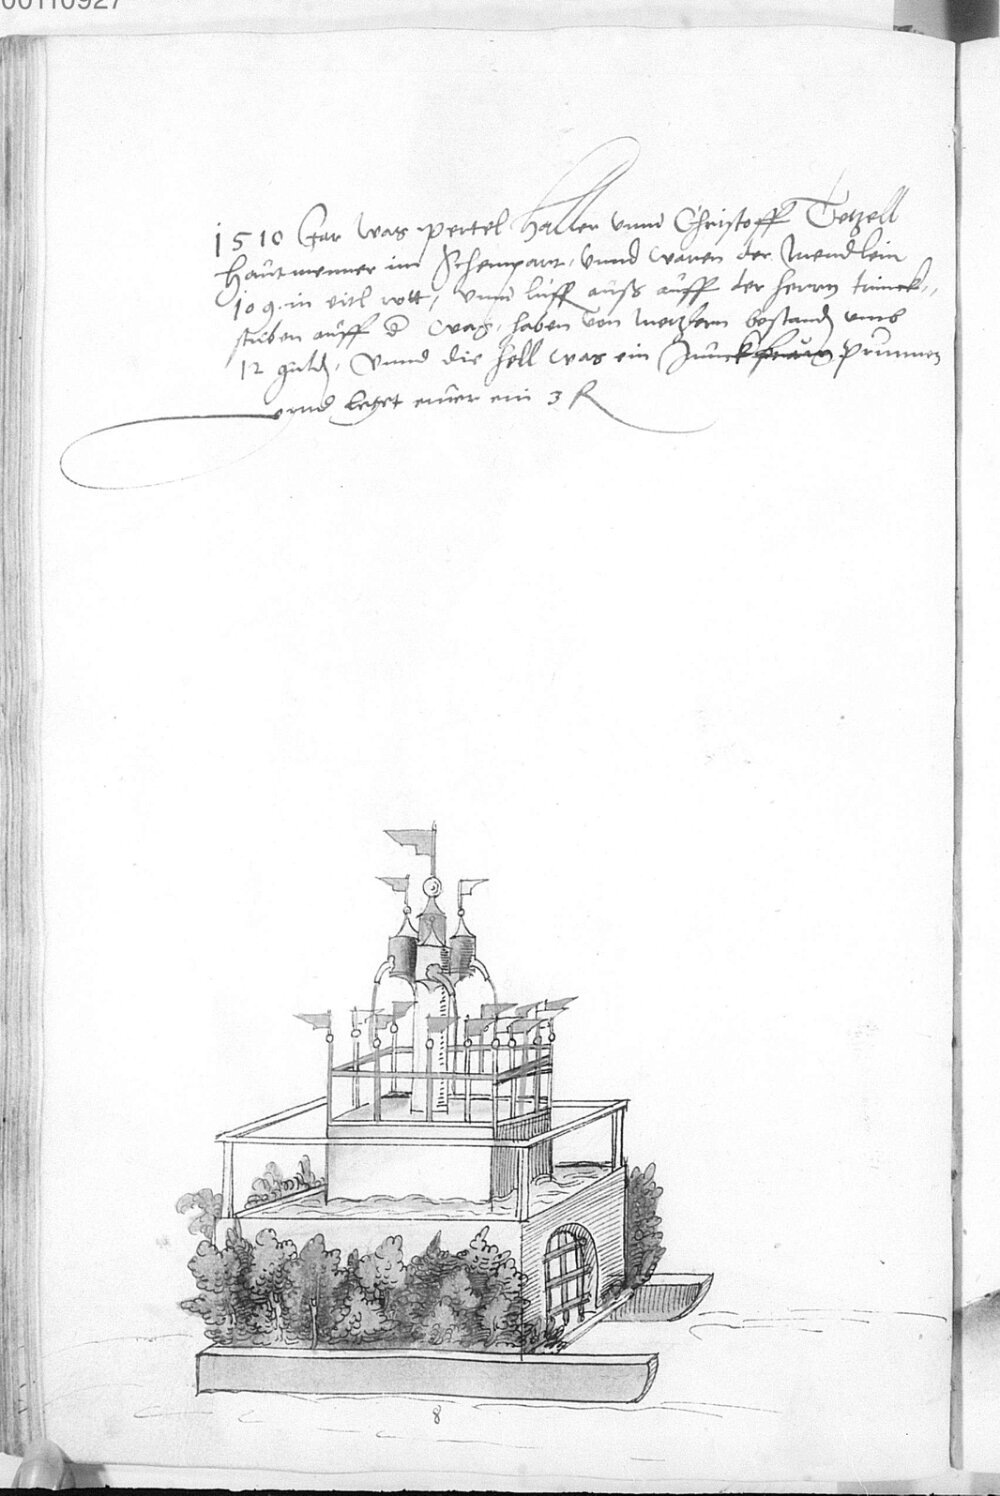 00110927
1510 Jar was pertel Haller unnd Christoff Tetzell
Hautmenner im Schempart, vnnd waren der mendlein
109. in eitl rott, vnnd luff auß auff der herrn trinck,,
stuben auff d wag, haben von metzkern bestandn umb
12 guldn, Vnnd die hell was ein Junck prunnen
vnnd leget einer ein 3 R
8